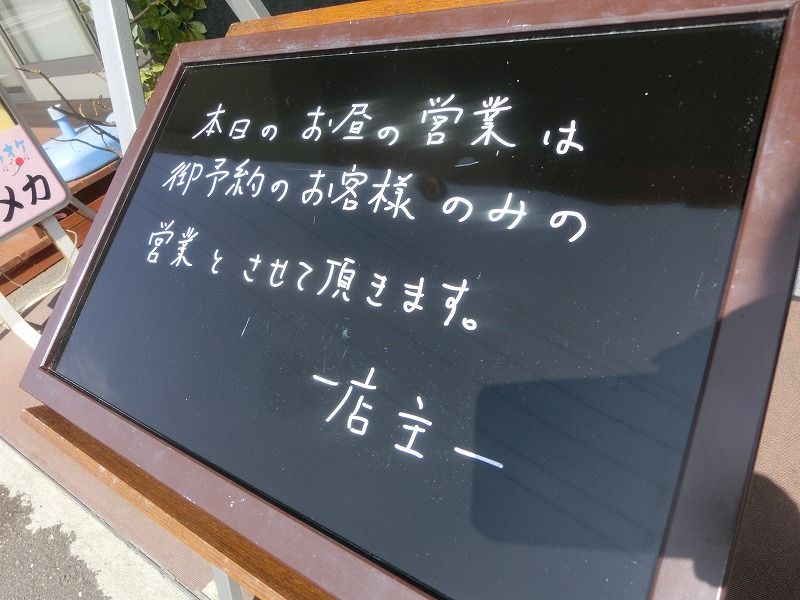 本日のお昼の営業は
御予約のお客様のみの
営業とさせて頂きます。
ー店主ー
オケ
メカ